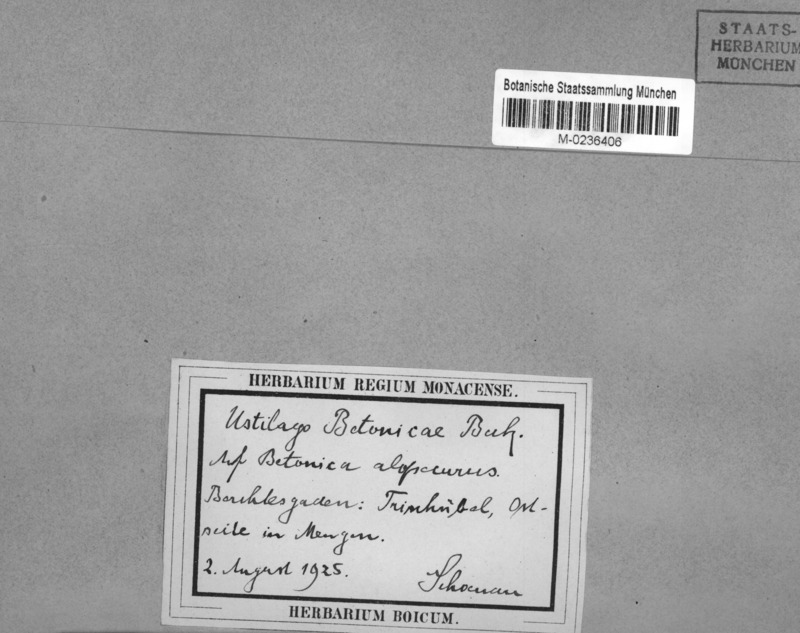 STAATS-
HERBARIUM
MÜNCHEN
Botanische Staatssammlung München
M-0236406
HERBARIUM REGIUM MONACENSE.
Ustilago Betonicae Beck.
Auf Betonica alopecurus.
Berchtesgaden: Trischübel, Ost-
seite in Mengen.
2. August 1925.
Schoenau
HERBARIUM BOICUM.